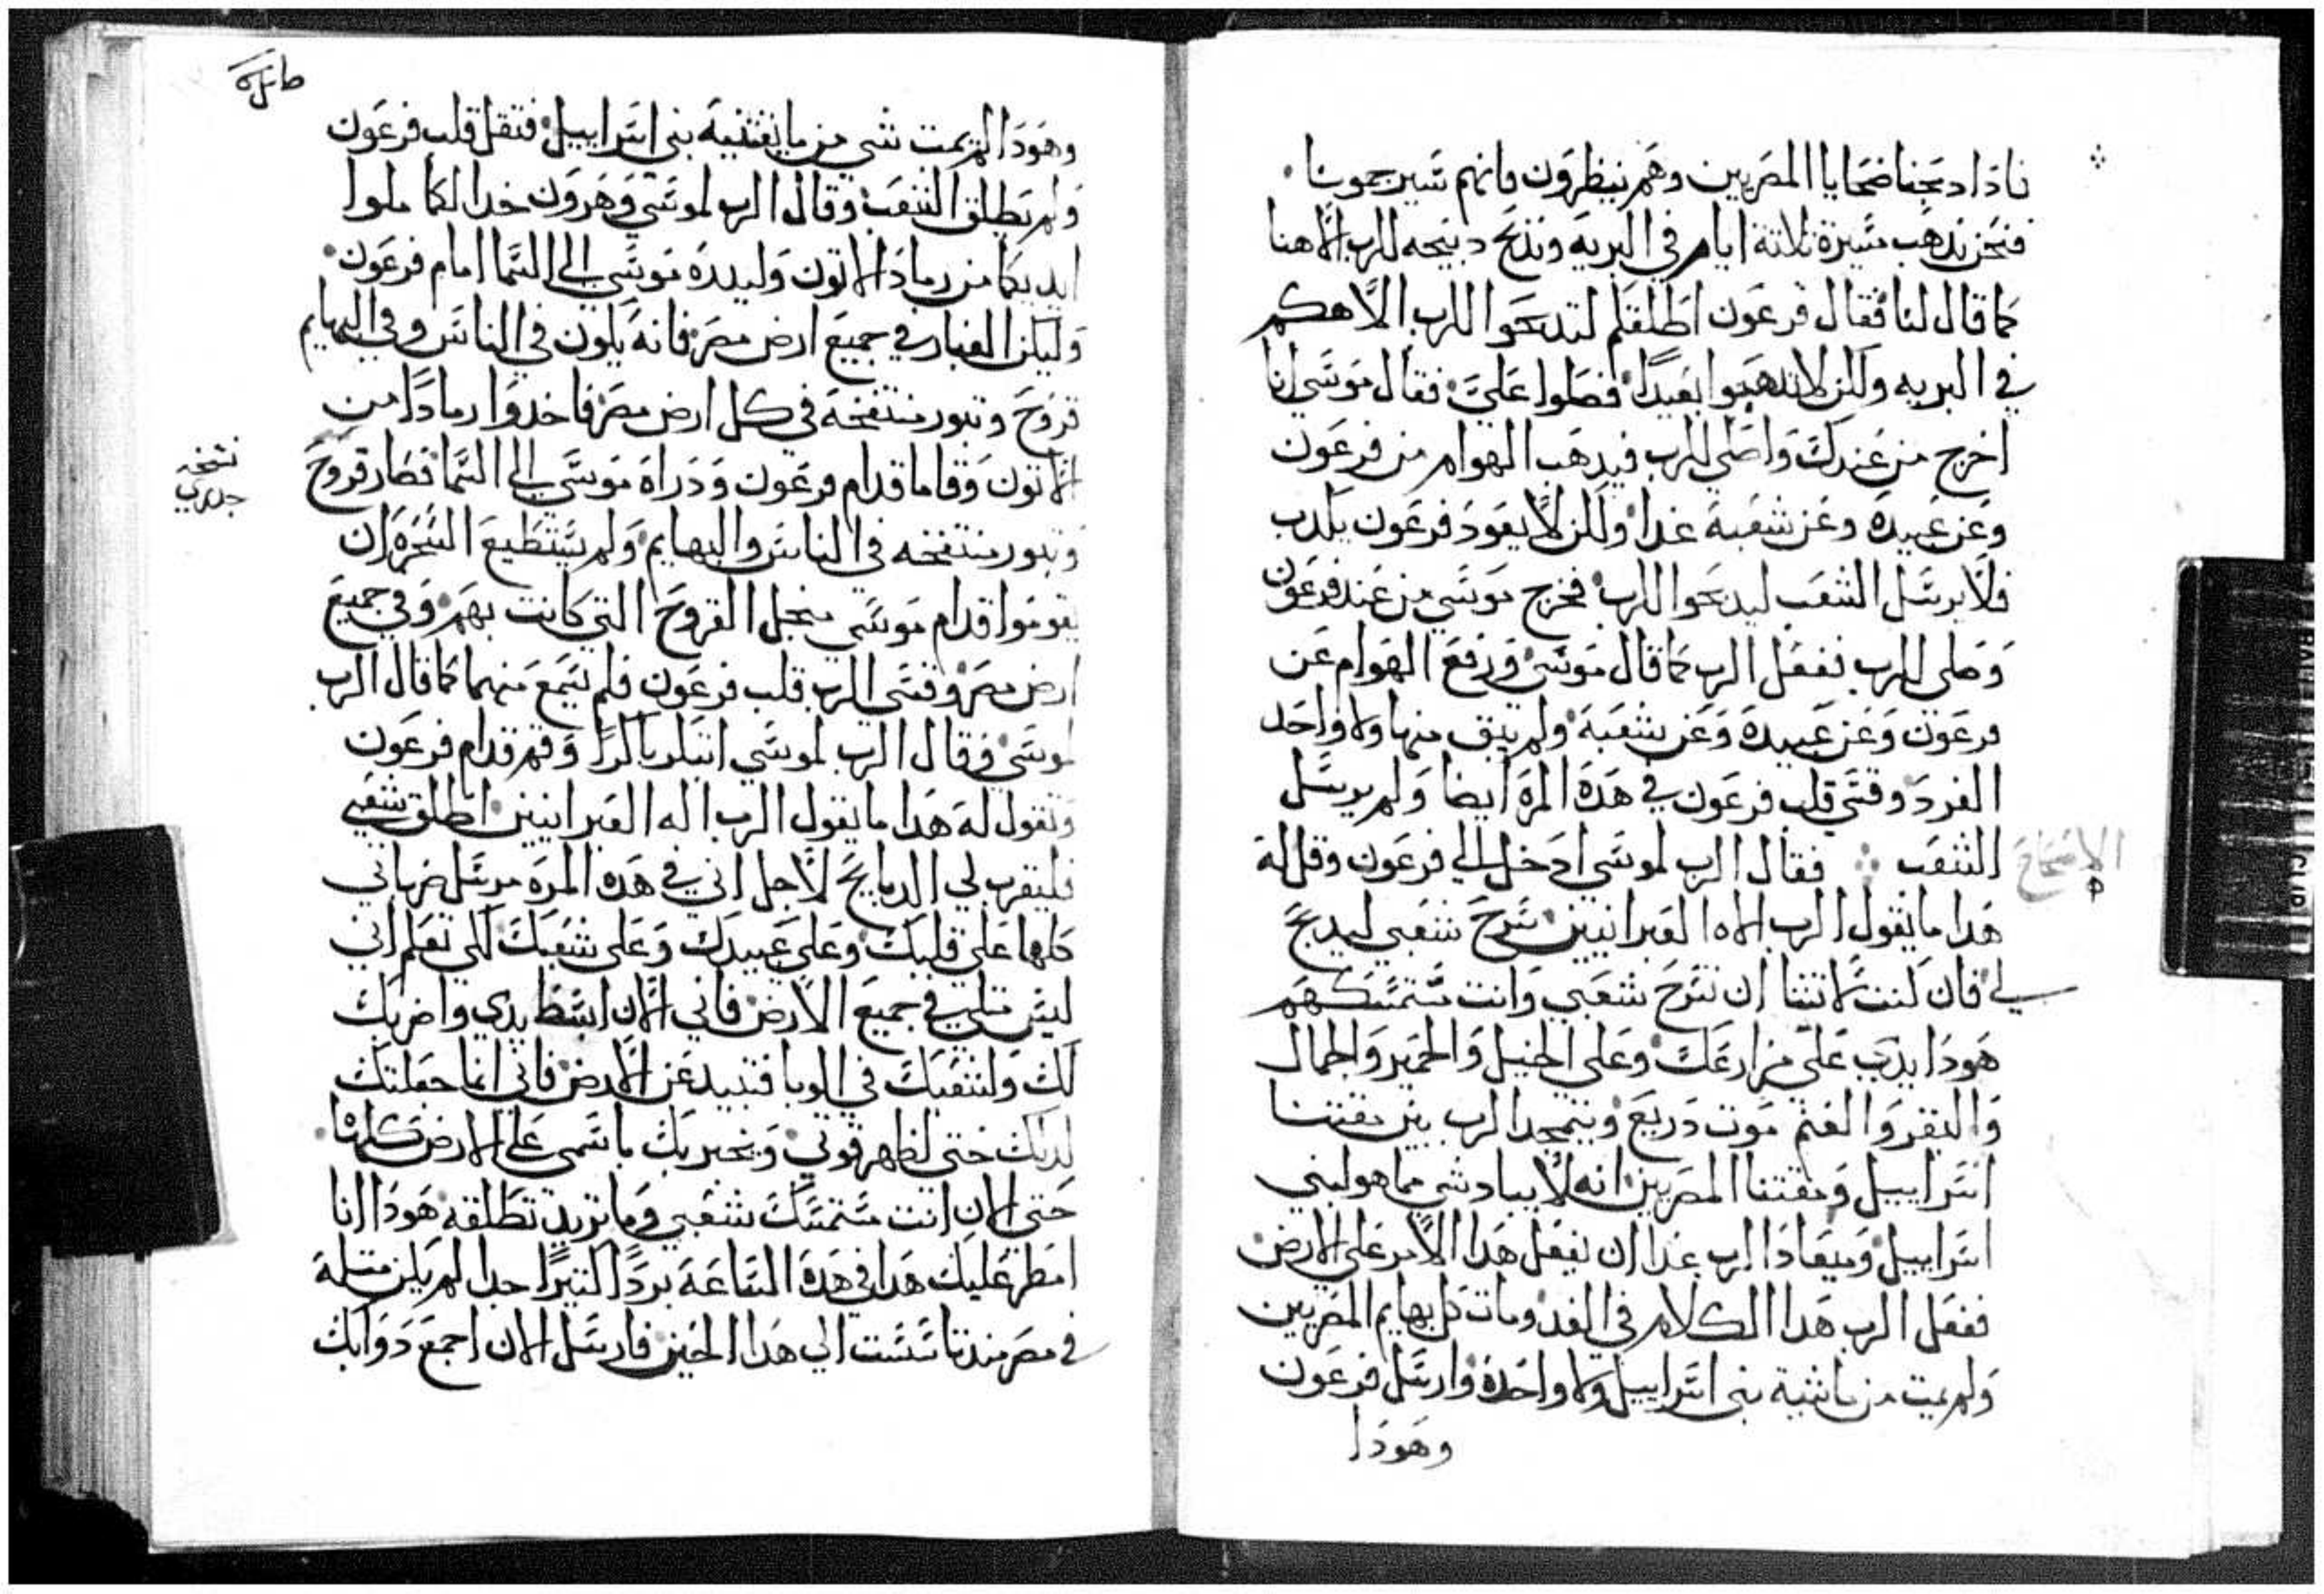 فاذا دبحنا ضحايا المصريين وهم ينظرون فانهم سيرجمونا
فنحن ندهب مسيرة تلاتة ايام في البريه وندبح دبيحه للرب الاهنا
كما قال لنا فقال فرعون اطلقكم لتدبحوا للرب الاهكم
في البريه ولكن لا تدهبوا بعيدا فصلوا علي فقال موسي انا
اخرج من عندك واصلي للرب فيدهب الهوام من فرعون
وعن عبيده وعن شعبة غدا ولكن لا يعود فرعون يكدب
فلا يرسل الشعب ليدبحوا للرب فخرج موسي من عند فرعون
وصلي للرب ففعل الرب كما قال موسي ورفع الهوام عن
فرعون وعن عبيده وعن شعبة ولم يبق منها ولا واحد
الفرد وقسي قلب فرعون في هده المرة ايضا ولم يرسل
الشعب فقال الرب لموسي ادخل الي فرعون وقل له
الاصحاح
٩
هدا ما يقول الرب الاه العبرانيين سرح شعبي ليدبح
لي فان كنت لا تشا ان تسرح شعبي وانت متمسكهم
هودا يد رب علي مزارعك وعلي الخيل والحمير والجمال
والبقر والغنم موت دريع ويتمجد الرب بين مقتنا
اسراييل ومقتنا المصريين انه لا يباد شي مما هو لبني
اسراييل وميعاد الرب غدا ان يفعل هدا الامر علي الارض
ففعل الرب هدا الكلام في الغد ومات كل بهايم المصريين
ولم يمت من ماشية بني اسراييل ولا واحدة وارسل فرعون
وهودا
وهودا لم يمت شي من ماشية بني اسراييل فتقل قلب فرعون
ولم يطلق الشعب وقال الرب لموسي وهرون خدا لكما ملوا
ايديكما من رماد الاتون وليدره موسي الي السما امام فرعون
وليكن الغبار في جميع ارض مصر فانه يكون في الناس وفي البهايم
قروح وتبور منتفخة في كل ارض مصر فاخدوا رمادا من
الاتون وقاما قدام فرعون ودراه موسي الي السما فصار قروح
نسخه
جدري
وتبور منتفخه في الناس والبهايم ولم يستطيع السحره ان
يقوموا قدام موسي منجل القروح التي كانت بهم وفي جميع
ارض مصر وقسي الرب قلب فرعون فلم يسمع منهما كما قال الرب
لموسي وقال الرب لموسي ابتكر باكرا وقم قدام فرعون
وتقول له هدا ما يقول الرب اله العبرانيين اطلق شعبي
فليقرب لي الدبايح لاجل اني في هده المرة مرسل ضرباتي
كلها علي قلبك وعلي عبيدك وعلي شعبك لكي تعلم اني
ليس متلي في جميع الارض فاني الان ابسط يدي واضربك
لك ولشعبك في الوبا فتبيد عن الارض فاني انما جعلتك
لديك حتي اظهر قوتي ويخبر بك باسمي علي الارض كلها
حتي الان انت متمسك شعبي وما تريد تطلقه هودا انا
امطر عليك هدا في هده الساعة بردا كتيرا جدا لم يكن متله
في مصر مند تاسست الي هدا الحين فارسل الان اجمع دوابك